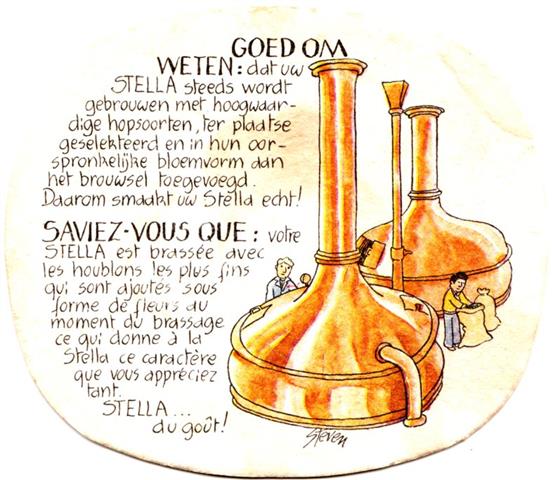 GOED OM
WETEN: dat uw
STELLA steeds wordt
gebrouwen met hoogwaar-
dige hopsoorten, ter plaatse
geselekteerd en in hun oor-
spronkelijke bloemvorm aan
het brouwsel toegevoegd.
Daarom smaakt uw Stella echt!
SAVIEZ-VOUS QUE: votre
STELLA est brassée avec
les houblons les plus fins
qui sont ajoutés sous
forme de fleurs au
moment du brassage
ce qui donne à la
Stella ce caractère
que vous appréciez
tant.
STELLA...
du goût!
Steven